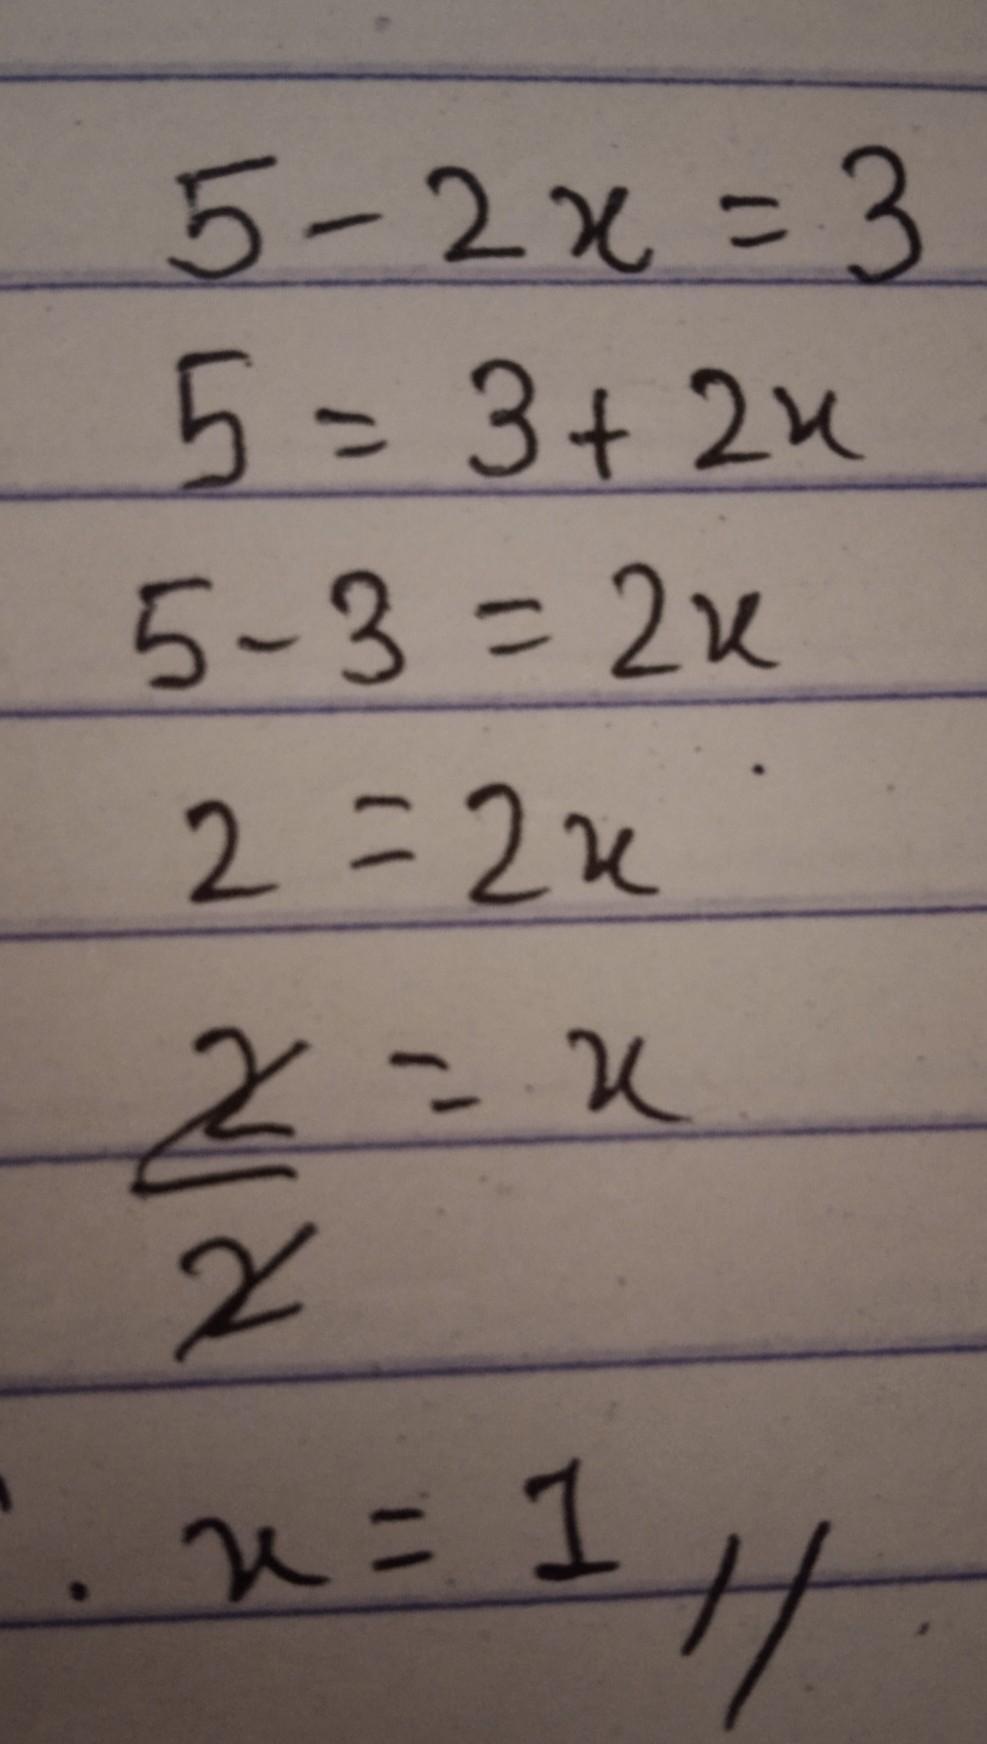 5 - 2x = 3
5 = 3 + 2x
5 - 3 = 2x
2 = 2x
2/2 = x
∴ x = 1 //